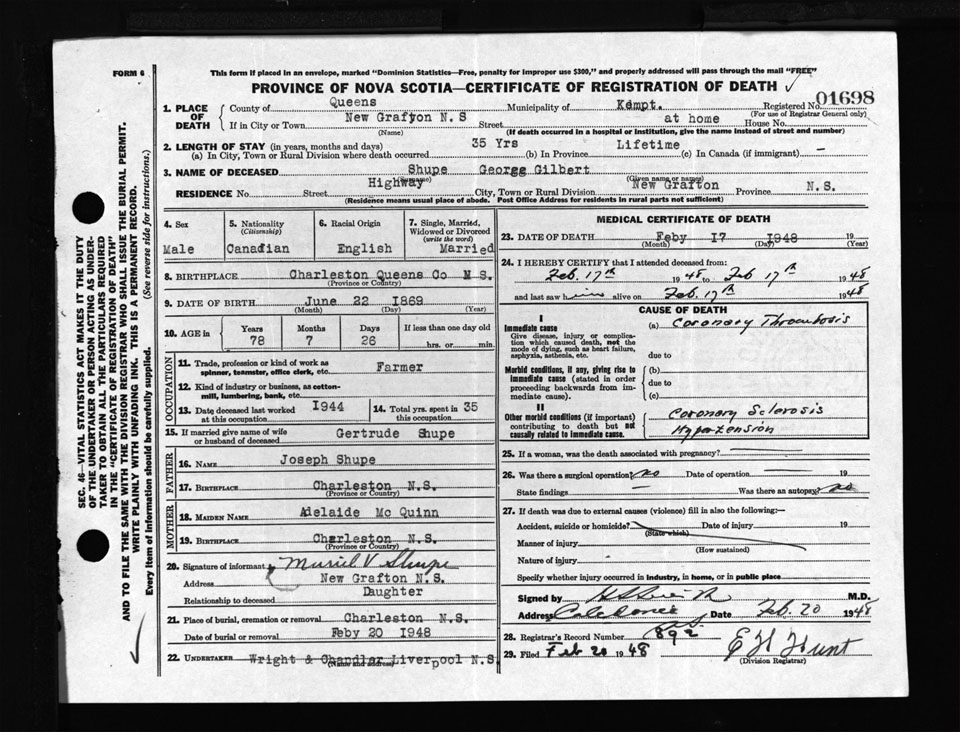 FORM 6
This form if placed in an envelope, marked "Dominion Statistics—Free, penalty for improper use $300," and properly addressed will pass through the mail "FREE"
PROVINCE OF NOVA SCOTIA—CERTIFICATE OF REGISTRATION OF DEATH
1. PLACE OF DEATH
County of Queens Municipality of Kempt. Registered No. 01698
(For use of Registrar General only)
If in City or Town New Grafton N.S Street at home House No.
(Name) (If death occurred in a hospital or institution, give the name instead of street and number)
2. LENGTH OF STAY (in years, months and days) 35 Yrs Lifetime
(a) In City, Town or Rural Division where death occurred (b) In Province (c) In Canada (if immigrant) —
3. NAME OF DECEASED Shupe George Gilbert
(Surname) (Given name or names)
RESIDENCE No. Street Highway City, Town or Rural Division New Grafton Province N.S.
(Residence means usual place of abode. Post Office Address for residents in rural parts not sufficient)
4. Sex
Male
5. Nationality
(Citizenship)
Canadian
6. Racial Origin
English
7. Single, Married, Widowed or Divorced
(write the word)
Married
8. BIRTHPLACE Charleston Queens Co N S.
(Province or Country)
9. DATE OF BIRTH June 22 1869
(Month) (Day) (Year)
10. AGE in
Years Months Days If less than one day old
78 7 26 hrs. or min.
OCCUPATION
11. Trade, profession or kind of work as spinner, teamster, office clerk, etc. Farmer
12. Kind of industry or business, as cotton-mill, lumbering, bank, etc.
13. Date deceased last worked at this occupation 1944
14. Total yrs. spent in this occupation 35
15. If married give name of wife or husband of deceased Gertrude Shupe
FATHER
16. NAME Joseph Shupe
17. BIRTHPLACE Charleston N.S.
(Province or Country)
MOTHER
18. MAIDEN NAME Adelaide Mc Quinn
19. BIRTHPLACE Charleston N.S.
(Province or Country)
20. Signature of informant Muriel V Shupe
Address New Grafton N.S.
Relationship to deceased Daughter
21. Place of burial, cremation or removal Charleston N.S.
Date of burial or removal Feby 20 1948
22. UNDERTAKER Wright & Chandler Liverpool N.S.
(Name and address)
MEDICAL CERTIFICATE OF DEATH
23. DATE OF DEATH Feby 17 1948 19
(Month) (Day) (Year)
24. I HEREBY CERTIFY that I attended deceased from:
Feb. 17th 1948 to Feb 17th 1948
and last saw him alive on Feb. 17th 1948
CAUSE OF DEATH
I
Immediate cause
Give disease, injury or complication which caused death, not the mode of dying, such as heart failure, asphyxia, asthenia, etc.
(a) Coronary Thrombosis
due to
Morbid conditions, if any, giving rise to immediate cause (stated in order proceeding backwards from immediate cause).
(b)
due to
(c)
II
Other morbid conditions (if important) contributing to death but not causally related to immediate cause.
Coronary Sclerosis
Hypertension
25. If a woman, was the death associated with pregnancy? —
26. Was there a surgical operation? no Date of operation — 19
State findings — Was there an autopsy? no
27. If death was due to external causes (violence) fill in also the following:—
Accident, suicide or homicide? Date of injury 19
(State which)
Manner of injury
(How sustained)
Nature of injury
Specify whether injury occurred in industry, in home, or in public place
Signed by M.D.
Address Caledonia Date Feb. 20 1948
28. Registrar's Record Number 892
29. Filed Feb 20 1948 E H Hunt
(Division Registrar)
SEC. 46—VITAL STATISTICS ACT MAKES IT THE DUTY
OF THE UNDERTAKER OR PERSON ACTING AS UNDER-
TAKER TO OBTAIN ALL THE PARTICULARS REQUIRED
IN THE "CERTIFICATE OF REGISTRATION OF DEATH"
AND TO FILE THE SAME WITH THE DIVISION REGISTRAR WHO SHALL ISSUE THE BURIAL PERMIT.
WRITE PLAINLY WITH UNFADING INK. THIS IS A PERMANENT RECORD.
Every item of information should be carefully supplied. (See reverse side for instructions.)